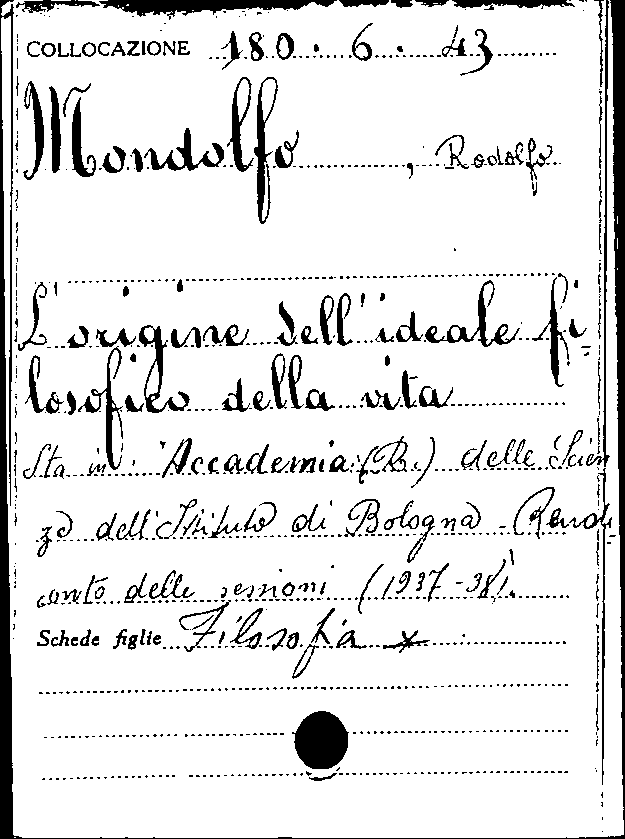 COLLOCAZIONE 180 . 6 . 43
Mondolfo , Rodolfo
L'origine dell'ideale fi-
losofico della vita
Sta in: "Accademia (R.) delle Scien
ze dell'Istituto di Bologna - Rendi-
conto delle sessioni (1937-38).
Schede figlie Filosofia x